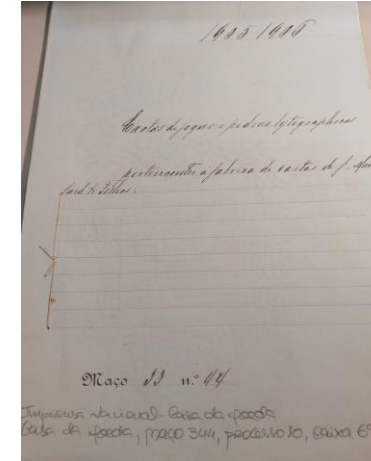 1905-1906
Cartas de jogar e pedras lytographicas
pertencentes á fabrica de cartas de J.
& Filhos.
Maço II n.º 44
Imprensa Nacional - Casa da Moeda
Casa da Moeda, maço 344, processo 10, Caixa 6